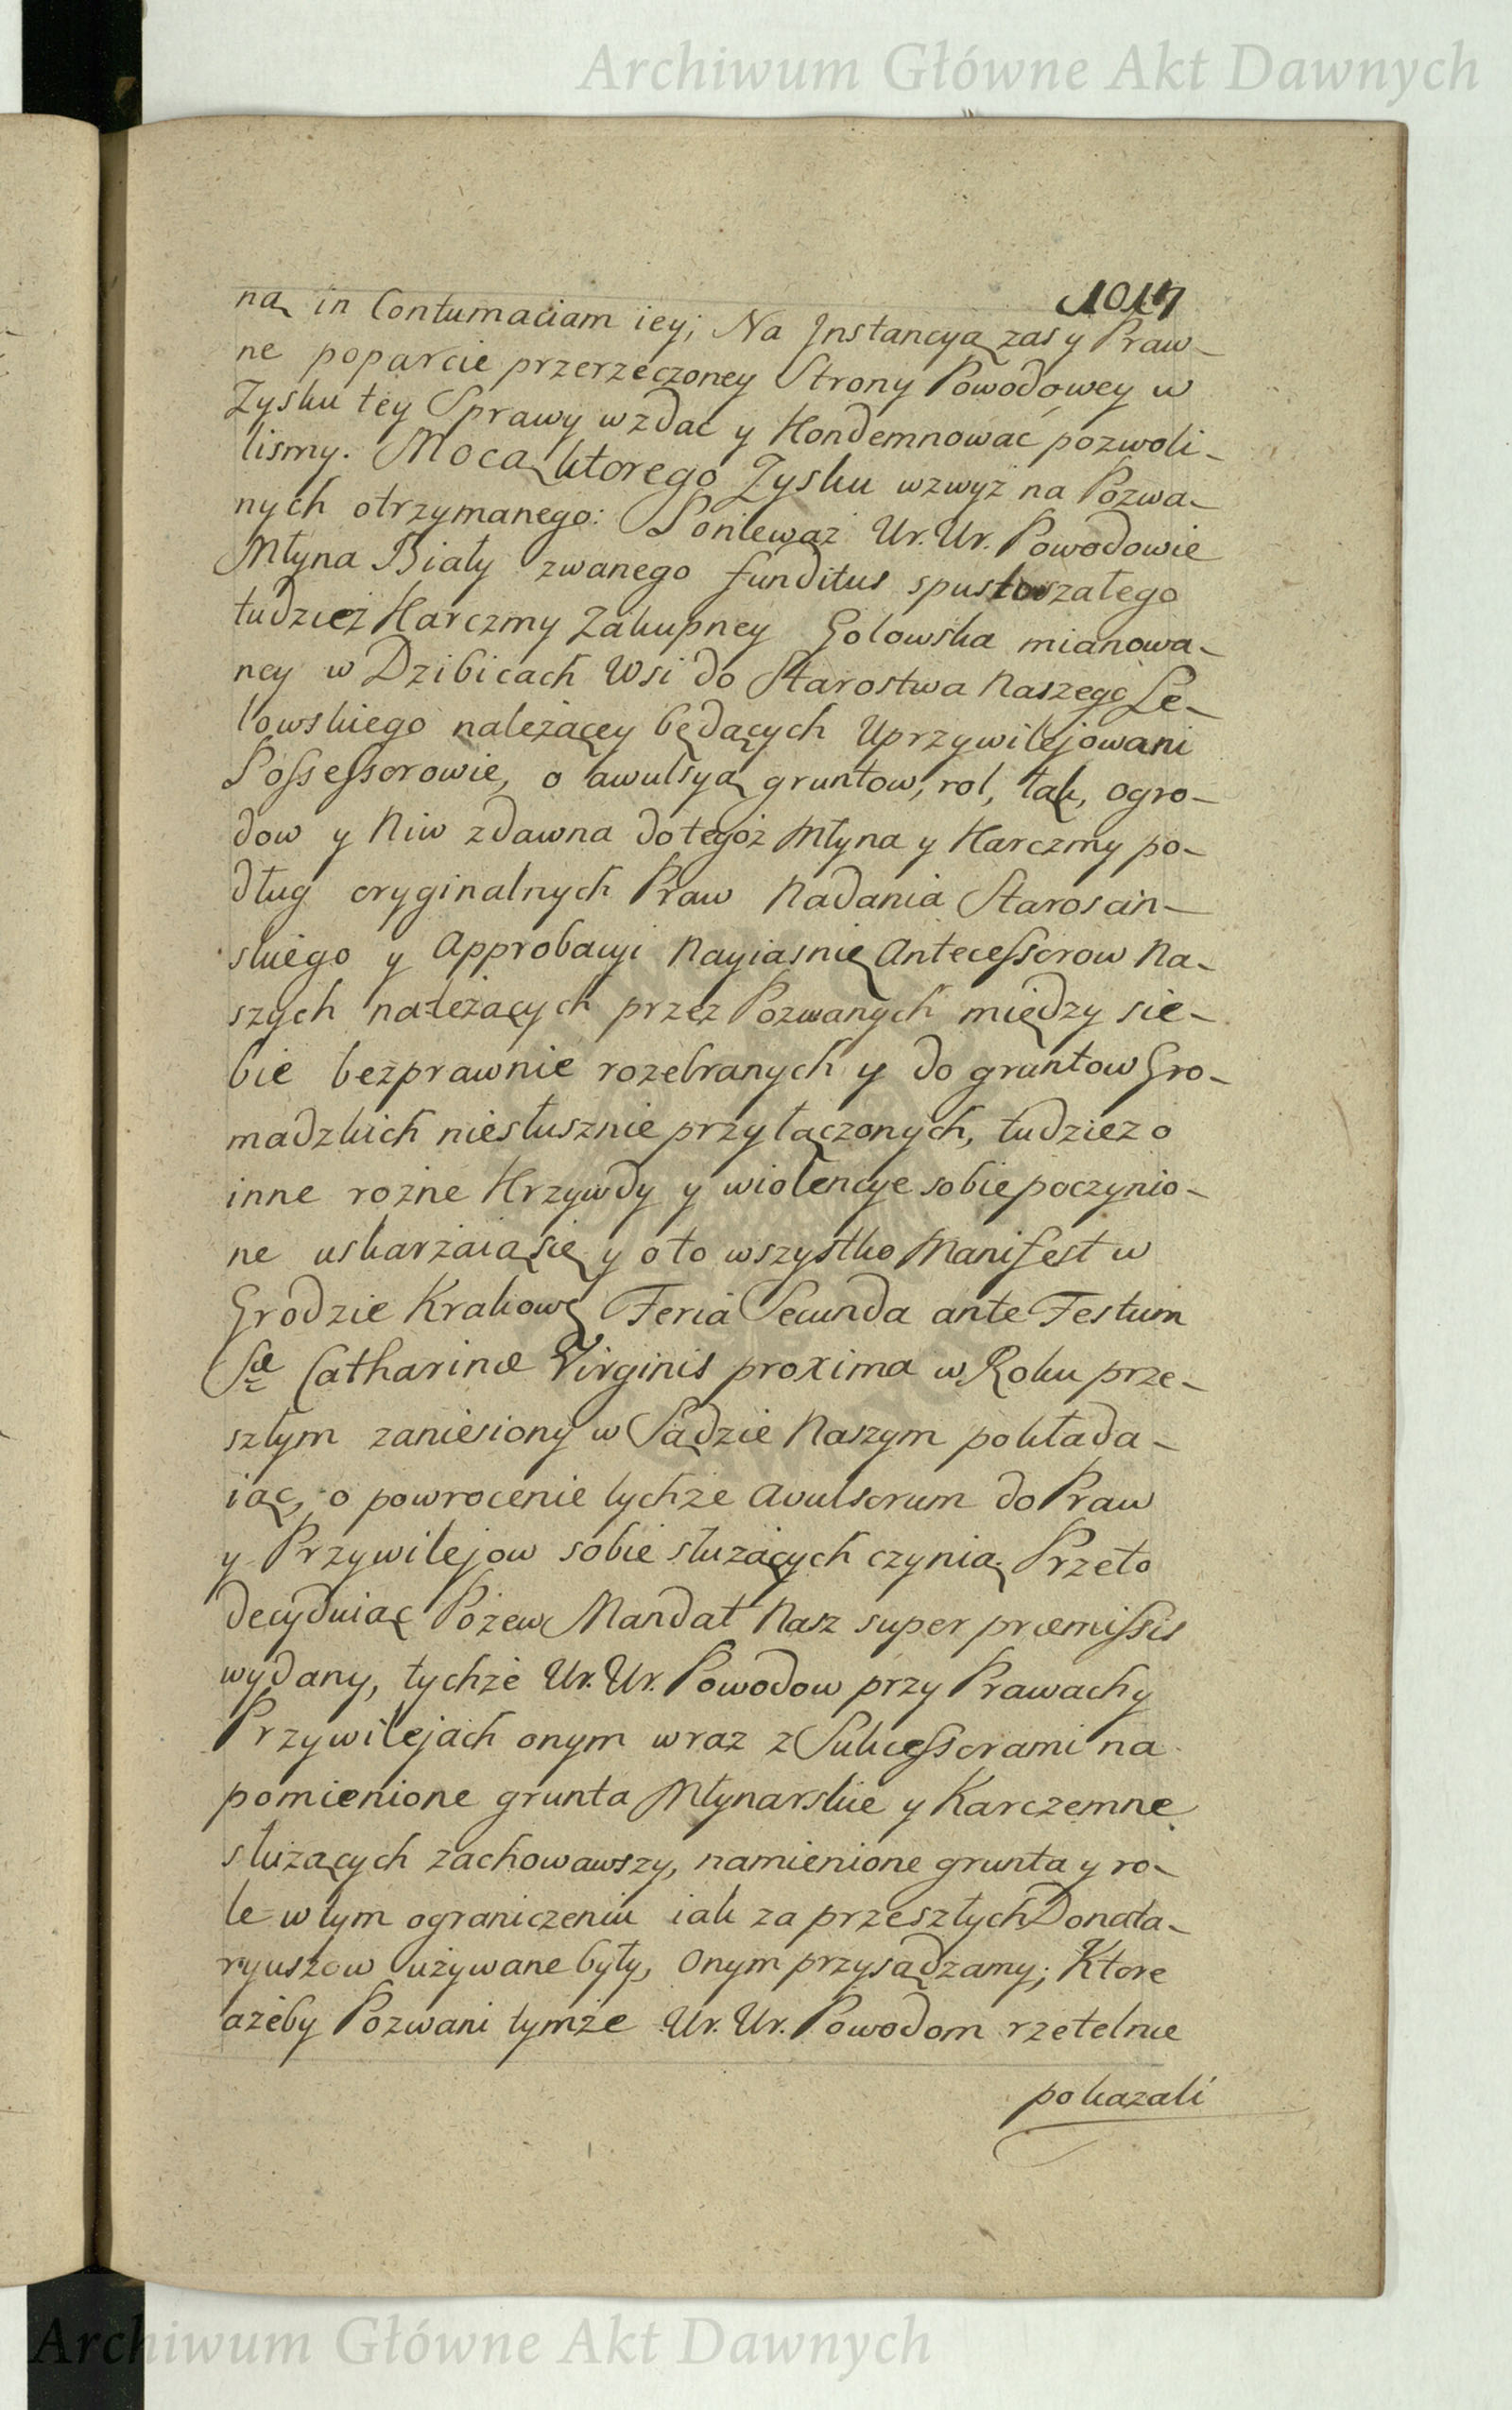 Archiwum Główne Akt Dawnych
1017
ną in Contumaciam iey; Na Jnstancyą zas y Praw-
ne poparcie przerzeczoney Strony Powodowey w
Zysku tey Sprawy wzdać y Kondemnować pozwoli-
lismy. Mocą ktorego Zysku wzwyż na Pozwa-
nych otrzymanego: Ponieważ Ur. Ur. Powodowie
Młyna Biały zwanego funditus spustoszałego
tudzież Karczmy Zakupney Golowska mianowa-
ney w Dzibicach Wsi do Starostwa Naszego Le-
lowskiego należącey będących Uprzywilejowani
Possessorowie, o awulsyą gruntow, rol, łąk, ogro-
dow y Niw zdawna do tegoż Młyna y Karczmy po-
dług oryginalnych Praw Nadania Starosćin-
skiego y Approbacyi Nayiasnię Antecessorow Na-
szych należących przez Pozwanych między sie-
bie bezprawnie rozebranych y do gruntow Gro-
madzkich niesłusznie przyłączonych, tudziez o
inne rożne Krzywdy y wiolencye sobie poczynio-
ne uskarżaią się y o to wszystko Manifest w
Grodzie Krakows Feria Secunda ante Festum
Sæ Catharinæ Virginis proxima w Roku prze-
szłym zaniesiony w Sądzie Naszym pokłada-
iąc, o powrocenie tychże Avulsorum do Praw
y Przywilejow sobie służących czynią. Przeto
decyduiąc Pozew Mandat Nasz super præmissis
wydany, tychże Ur. Ur. Powodow przy Prawach y
Przywilejach onym wraz z Sukcessorami na
pomienione grunta Młynarskie y Karczemne
służących zachowawszy, namienione grunta y ro-
le w tym ograniczeniu iak za przeszłych Donata-
ryuszow używane były, onym przysądzamy; Ktore
ażeby Pozwani tymże Ur. Ur. Powodom rzetelnie
pokazali
Archiwum Główne Akt Dawnych